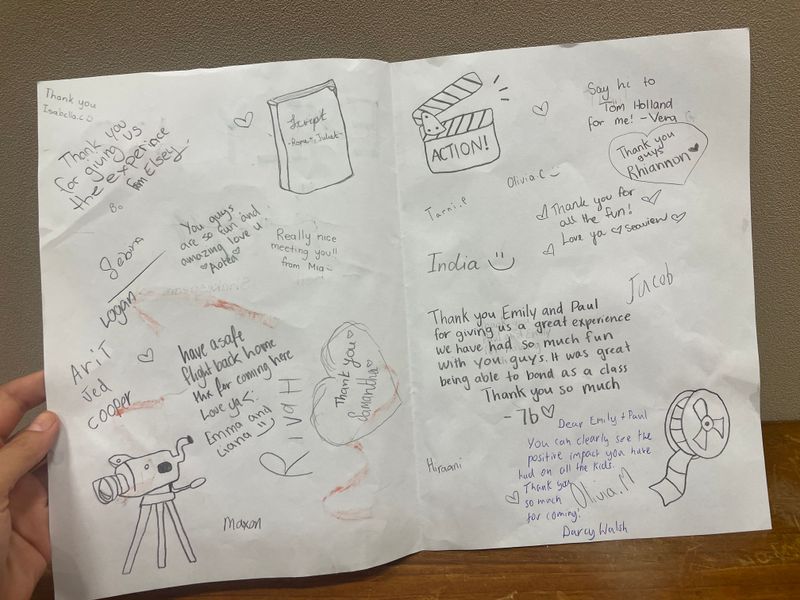 Thank you
Isabella.c
Thank you
for giving us
the experince
Tom Elsey
Bo
Script
- Romeo + Juliet -
You guys
are so fun and
amazing love u
Aotea
Really nice
meeting you!!
from Mia
Logan
Ari T
Jed
Cooper
have a safe
flight back home
thx for coming here
Love ya
Emma and
Liana
RIVAH
Thank you
Samantha
Maxon
ACTION!
Say hi to
Tom Holland
for me! - Vera G
Thank you
guys
Rhiannon
Olivia C
Tarni.P
Thank you for
all the fun!
Love ya Seaview
India
Jacob
Thank you Emily and Paul
for giving us a great experience
we have had so much fun
with you guys. It was great
being able to bond as a class
Thank you so much
- 7b
Dear Emily + Paul
You can clearly see the
positive impact you have
had on all the kids.
Thank you
so much
for coming!
Olivia.M
Hiraani
Darcy Walsh